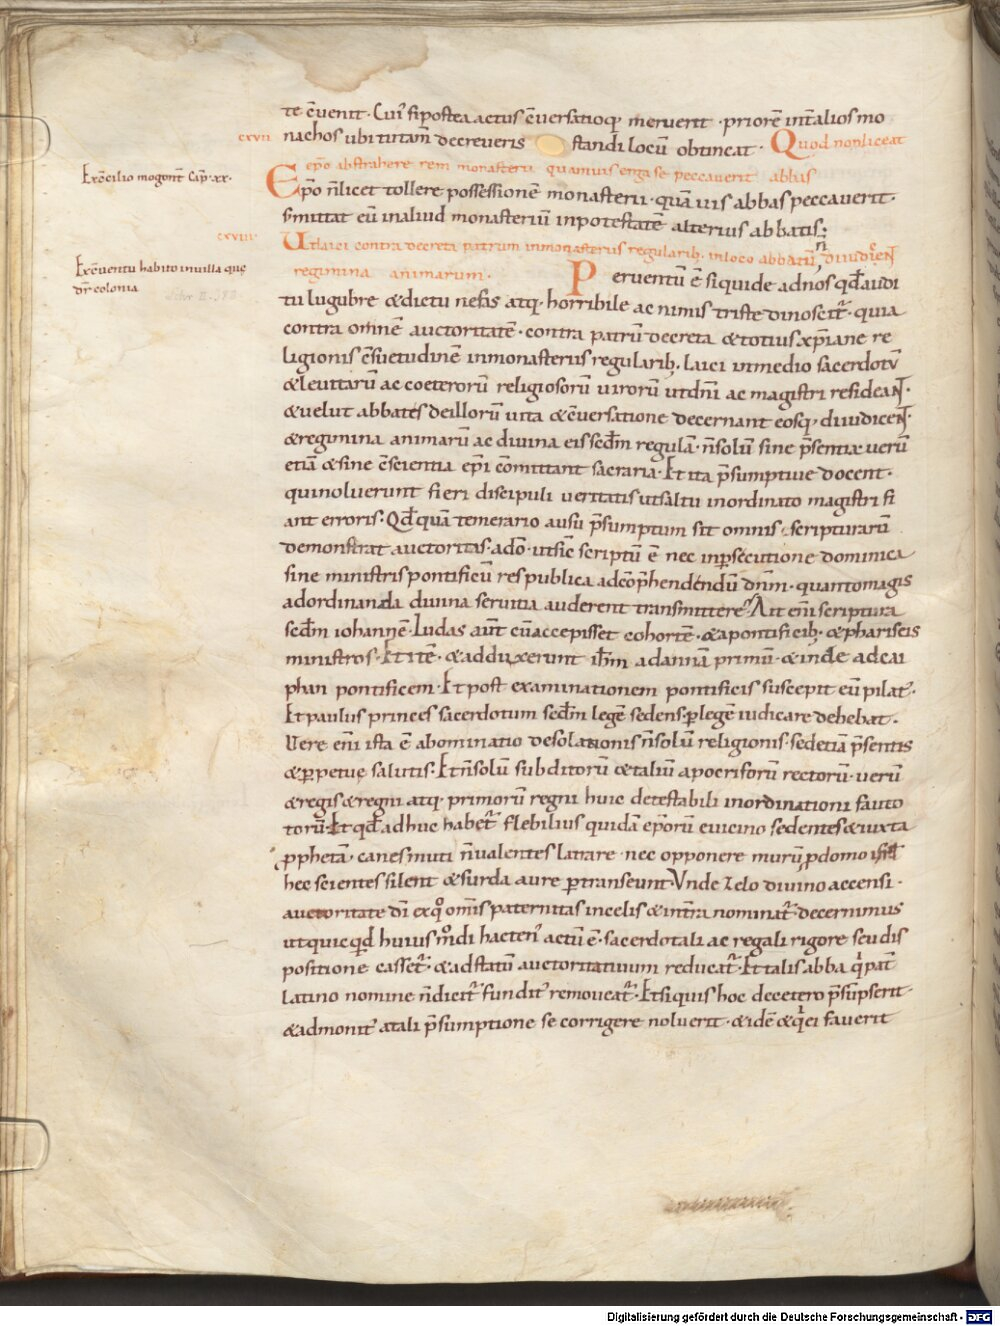 te c̄uenit · Cui' si postea actus c̄uersatioq; meruerit · priorē int̄ alios mo
cxvii nachos ubi tutam̄ decreueris standi locū obtineat · Quod non liceat
Ep̄o abstrahere rem monasterii quamuis erga se peccauerit abbas
Ex c̄cilio mogont̄ Cap̄ · xx ·
Ep̄o n̄ licet tollere possessionē monasterii · quā uis abbas peccauerit ·
S mittat eū in aliud monasteriū in potestatē alterius abbatis;
cxviii Ut laici contra decreta patrum in monasteriis regularib; in loco abbatū n̄ diiudicēnt
Ex c̄uentu habito in uilla quę dr̄ colonia
regimina animarum · Peruentū ē siquidē ad nos qđ audi
tu lugubre & dictu nefas atq; horribile ac nimis triste dinoscit̄ · quia
contra omnē auctoritatē · contra patrū decreta & totius xp̄iane re
ligionis c̄suetudinē in monasteriis regularib; Laici in medio sacerdotū
& leuitarū ac coeterorū religiosorū uirorū ut dn̄i ac magistri resideant ·
& uelut abbates de illorū uita & c̄uersatione decernant eosq; diiudicent ·
& regimina animarū ac diuina eis scđm regulā · n̄ solū sine p̄sentia uerū
etiā & sine c̄scientia ep̄i c̄mittant sacraria · Et ita p̄sumptiue docent ·
qui noluerunt fieri discipuli ueritatis ut saltu inordinato magistri fi
ant erroris · Qđ quā temerario ausu p̄sumptum sit omnis scripturarū
demonstrat auctoritas · adō · ut sic̄ scriptū ē nec in p̄secutione dominica
sine ministris pontificū res publica ad cōp̄hendendū dn̄m · quanto magis
ad ordinanda diuina seruitia auderent transmittere · Ait eni scriptura
scđm iohannē · Iudas aut̄ cū accepisset cohortē · & a pontificib; & phariseis
ministros · Et itē · & adduxerunt ih̄m ad annā primū · & inde ad cai
phan pontificem · Et post examinationem pontificis suscepit eū pilat' ·
Et paulus princes sacerdotum scđm legē sedens · p legē iudicare debebat ·
Vere eni ista ē abominatio desolationis n̄ solū religionis · sed etiā p̄sentis
& perpetuę salutis · Et n̄ solū subditorū & taliū apocrisorū rectorū · uerū
& regis & regni atq; primorū regni huic detestabili inordinationi fauto
torū · Et qđ adhuc habet̄ flebilius quidā ep̄orū e uicino sedentes & iuxta
pphetā · canes muti n̄ ualentes latrare · nec opponere murū p domo isrl̄
hec scientes silent & surda aure ptranseunt · Vnde zelo diuino accensi ·
auctoritate dī ex q° om̄is paternitas in celis & in t̄ra nominat̄ · decernimus
ut quicqđ huius m°di hacten' actū ē · sacerdotali ac regali rigore seu dis
positione casset̄ · & ad statū auctoritatiuum reducat̄ · Et talis abba q' pat̄
Latino nomine n̄ dicit̄ fundit' remoueat̄ · Et si quis hoc de cetero p̄sūpserit ·
& admonit' a tali p̄sumptione se corrigere noluerit · & idē & q' ei fauerit
Digitalisierung gefördert durch die Deutsche Forschungsgemeinschaft - DFG